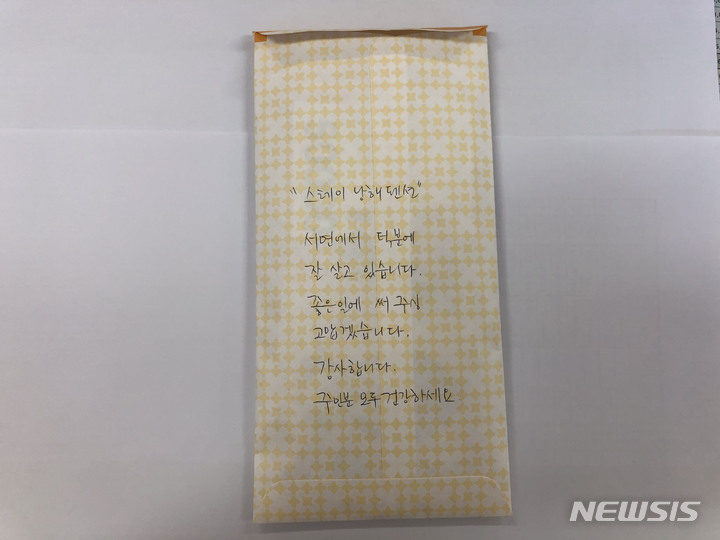 "스테이 남해펜션"
서면에서 덕분에
잘 살고 있습니다.
좋은일에 써 주심
고맙겠습니다.
감사합니다.
주민분 모두 건강하세요
NEWSIS